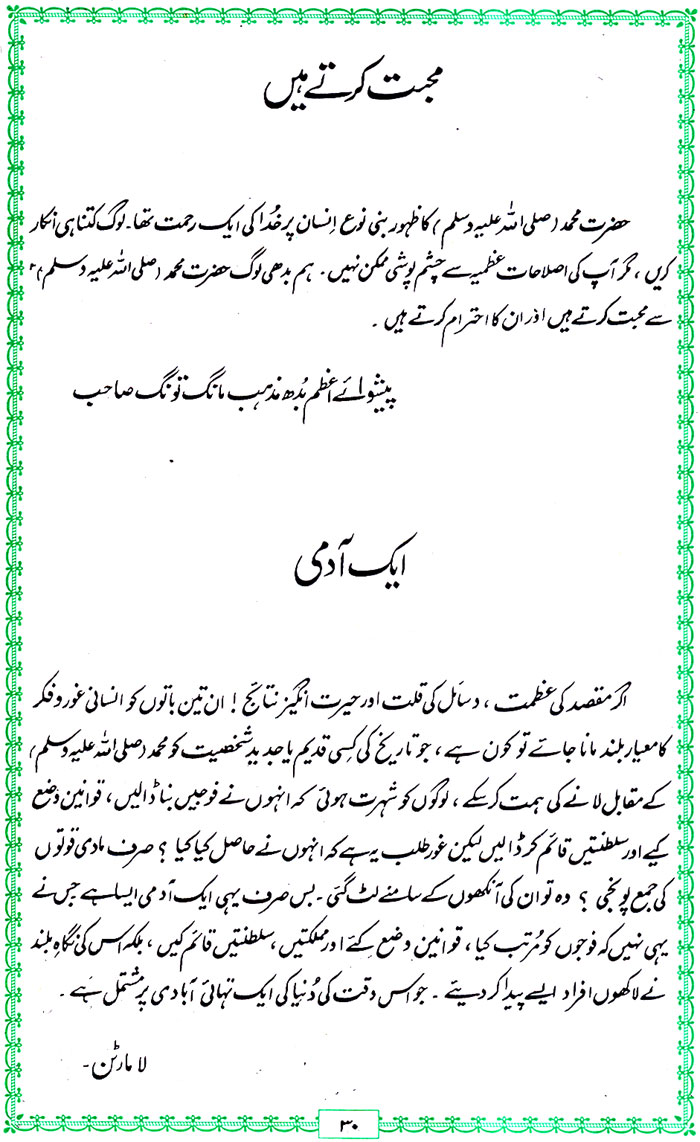 محبت کرتے ہیں
حضرت محمد (صلی اللہ علیہ وسلم) کا ظہور بنی نوع اِنسان پر خُدا کی ایک رحمت تھا۔ لوگ کتنا ہی انکار
کریں، مگر آپ کی اصلاحات عظمیہ سے چشم پوشی ممکن نہیں۔ ہم بدھی لوگ حضرت محمد (صلی اللہ علیہ وسلم)
سے محبت کرتے ہیں اور ان کا احترام کرتے ہیں۔
پیشوائے اعظم بُدھ مذہب مانگ تونگ صاحب
ایک آدمی
اگر مقصد کی عظمت، وسائل کی قلت اور حیرت انگیز نتائج! ان تین باتوں کو انسانی غور و فکر
کا معیار بلند مانا جائے تو کون ہے، جو تاریخ کی کِسی قدیم یا جدید شخصیت کو محمد (صلی اللہ علیہ وسلم)
کے مقابل لانے کی ہمت کر سکے، لوگوں کو شہرت ہوئی کہ انہوں نے فوجیں بنا ڈالیں، قوانین وضع
کیے اور سلطنتیں قائم کر ڈالیں لیکن غور طلب یہ ہے کہ انہوں نے حاصل کیا کیا؟ صرف مادی قوتوں
کی جمع پونجی؟ وہ تو ان کی آنکھوں کے سامنے لٹ گئی۔ بس صرف یہی ایک آدمی ایسا ہے جس نے
یہی نہیں کہ فوجوں کو مُرتب کیا، قوانین وضع کئے اور مملکتیں، سلطنتیں قائم کیں، بلکہ اس کی نگاہِ بلند
نے لاکھوں افراد ایسے پیدا کر دیئے۔ جو اس وقت کی دُنیا کی ایک تہائی آبادی پر مشتمل ہے۔
لا مارٹن۔
۳۰